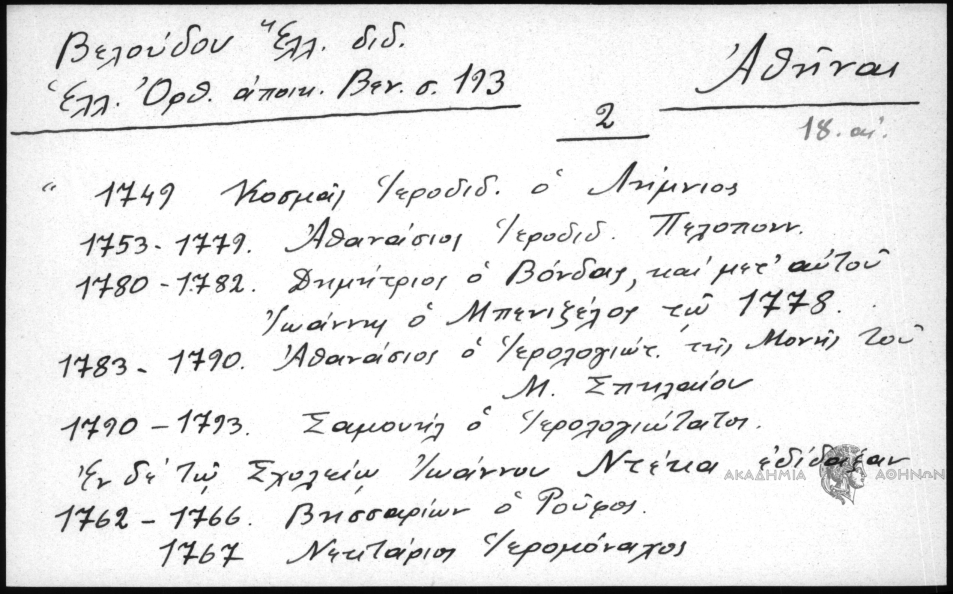 Βελούδου Ἑλλ. διδ.
Ἑλλ. Ὀρθ. ἀποικ. Βεν. σ. 193
Ἀθῆναι
2
18. αἰ.
" 1749 Κοσμᾶς Ἱεροδιδ. ὁ Λήμνιος
1753 - 1779. Ἀθανάσιος Ἱεροδιδ. Πελοπονν.
1780 - 1782. Δημήτριος ὁ Βόνδας, καί μετ' αὐτοῦ
Ἰωάννης ὁ Μπενιζέλος τῷ 1778.
1783 - 1790. Ἀθανάσιος ὁ Ἱερολογιώτ. τῆς Μονῆς τοῦ
Μ. Σπηλαίου
1790 - 1793. Σαμουήλ ὁ Ἱερολογιώτατος.
Ἐν δέ τῷ Σχολείῳ Ἰωάννου Ντέκα ἐδίδαξαν
ΑΚΑΔΗΜΙΑ ΑΘΗΝΩΝ
1762 - 1766. Βησσαρίων ὁ Ροῦφος.
1767 Νεκτάριος Ἱερομόναχος